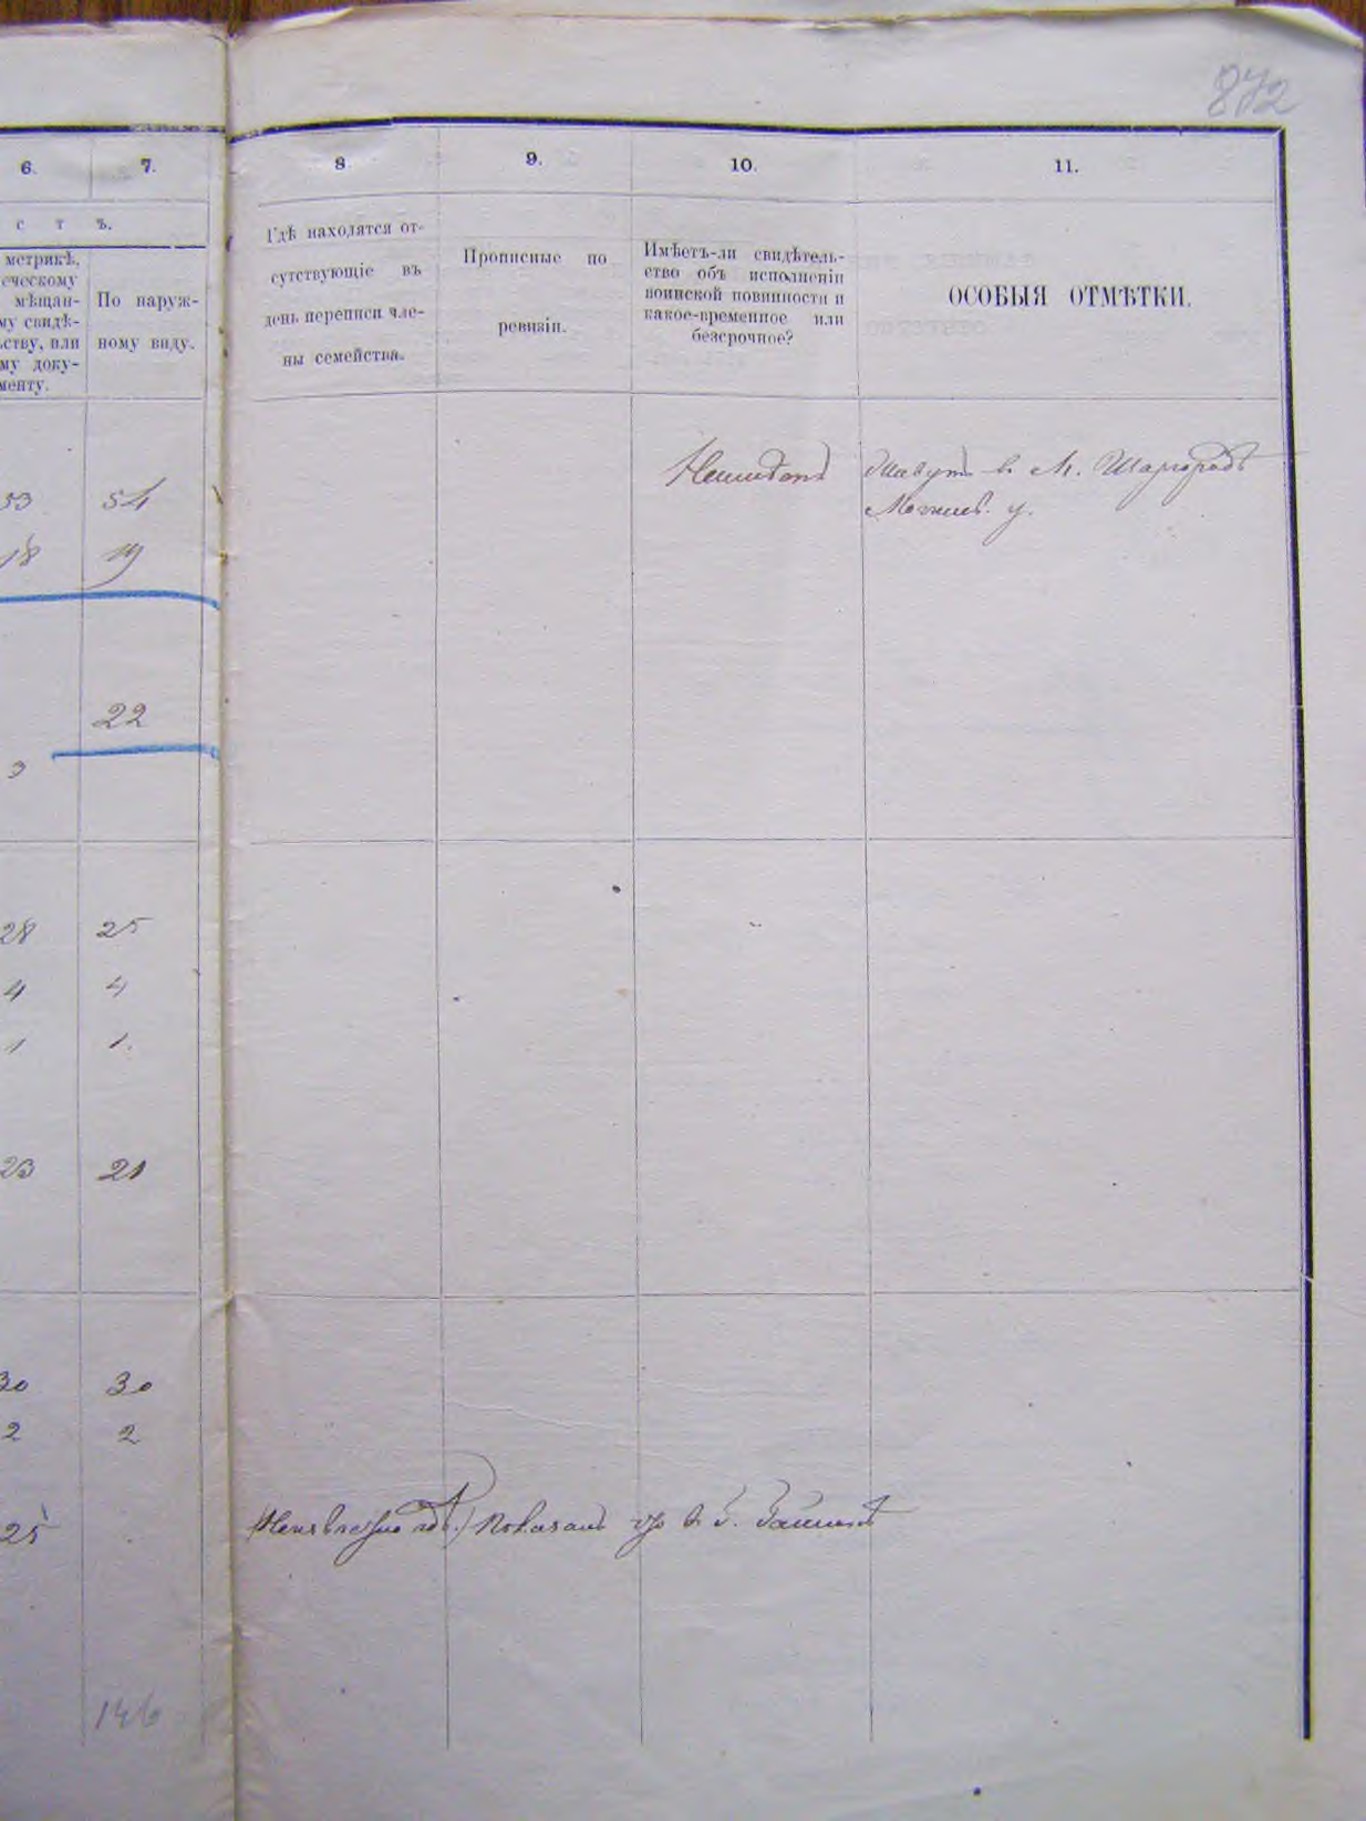 872
6.
7.
8
9.
10.
11.
с т ъ.
метрикѣ,
еческому
мѣщан-
му свидѣ-
ству, или
му доку-
менту.
По наруж-
ному виду.
Гдѣ находятся от-
сутствующіе въ
день переписи чле-
ны семейства.
Прописные по
ревизіи.
Имѣетъ-ли свидѣтель-
ство объ исполненіи
воинской повинности и
какое-временное или
безсрочное?
ОСОБЫЯ ОТМѢТКИ.
Живутъ в м. Шаргородѣ
Могилев. у.
53 54
18 19
22
28 25
4 4
1 1.
23 21
30 30
2 2
25
146